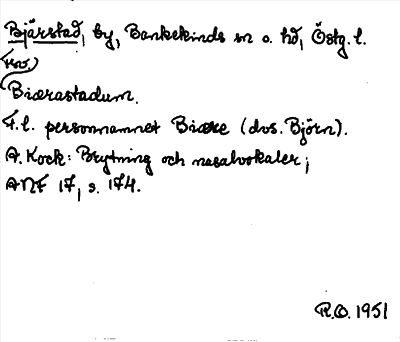 Bjärstad, by, Bankekinds sn o. hd, Östg. l.
Biærastadum.
F.l. personnamnet Biære (dvs. Björn).
A. Kock: Brytning och nasalvokaler;
ANF 17, s. 174.
R.O. 1951